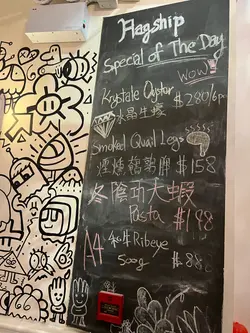 Flagship
Special of The Day
WOW!
Krystale Oyster
水晶生蠔 $280/6p
Smoked Quail Legs
煙燻鵪鶉脾 $158
冬陰功大蝦
Pasta $188
A4 和牛 Ribeye
500g $88